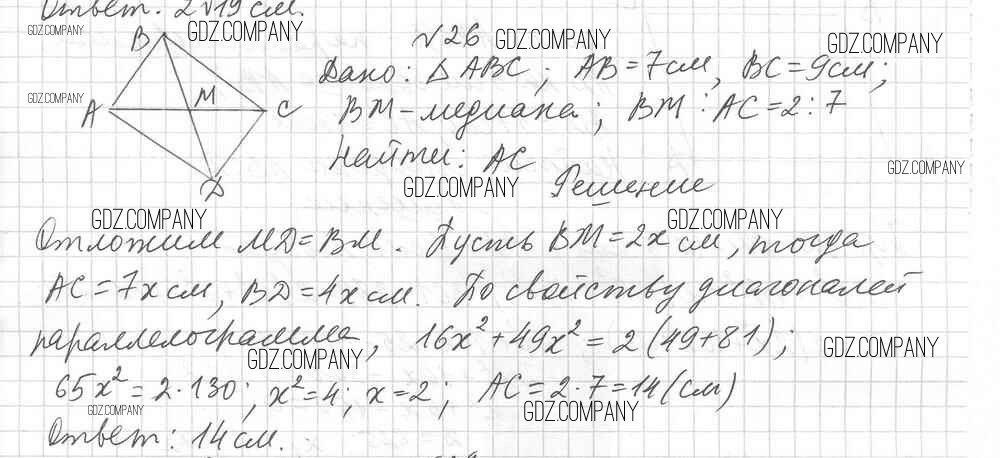 Ответ: 2√19 см.
GDZ.COMPANY
GDZ.COMPANY
B
№26
GDZ.COMPANY
GDZ.COMPANY
Дано: Δ ABC; AB = 7 см, BC = 9 см;
GDZ.COMPANY
A
M
C
BM - медиана; BM : AC = 2 : 7
Найти: AC
GDZ.COMPANY
D
GDZ.COMPANY
Решение
GDZ.COMPANY
GDZ.COMPANY
Отложим MD = BM. Пусть BM = 2x см, тогда
AC = 7x см, BD = 4x см. По свойству диагоналей
параллелограмма, 16x² + 49x² = 2 (49 + 81);
GDZ.COMPANY
GDZ.COMPANY
65x² = 2·130; x² = 4; x = 2; AC = 2·7 = 14 (см)
GDZ.COMPANY
GDZ.COMPANY
Ответ: 14 см.